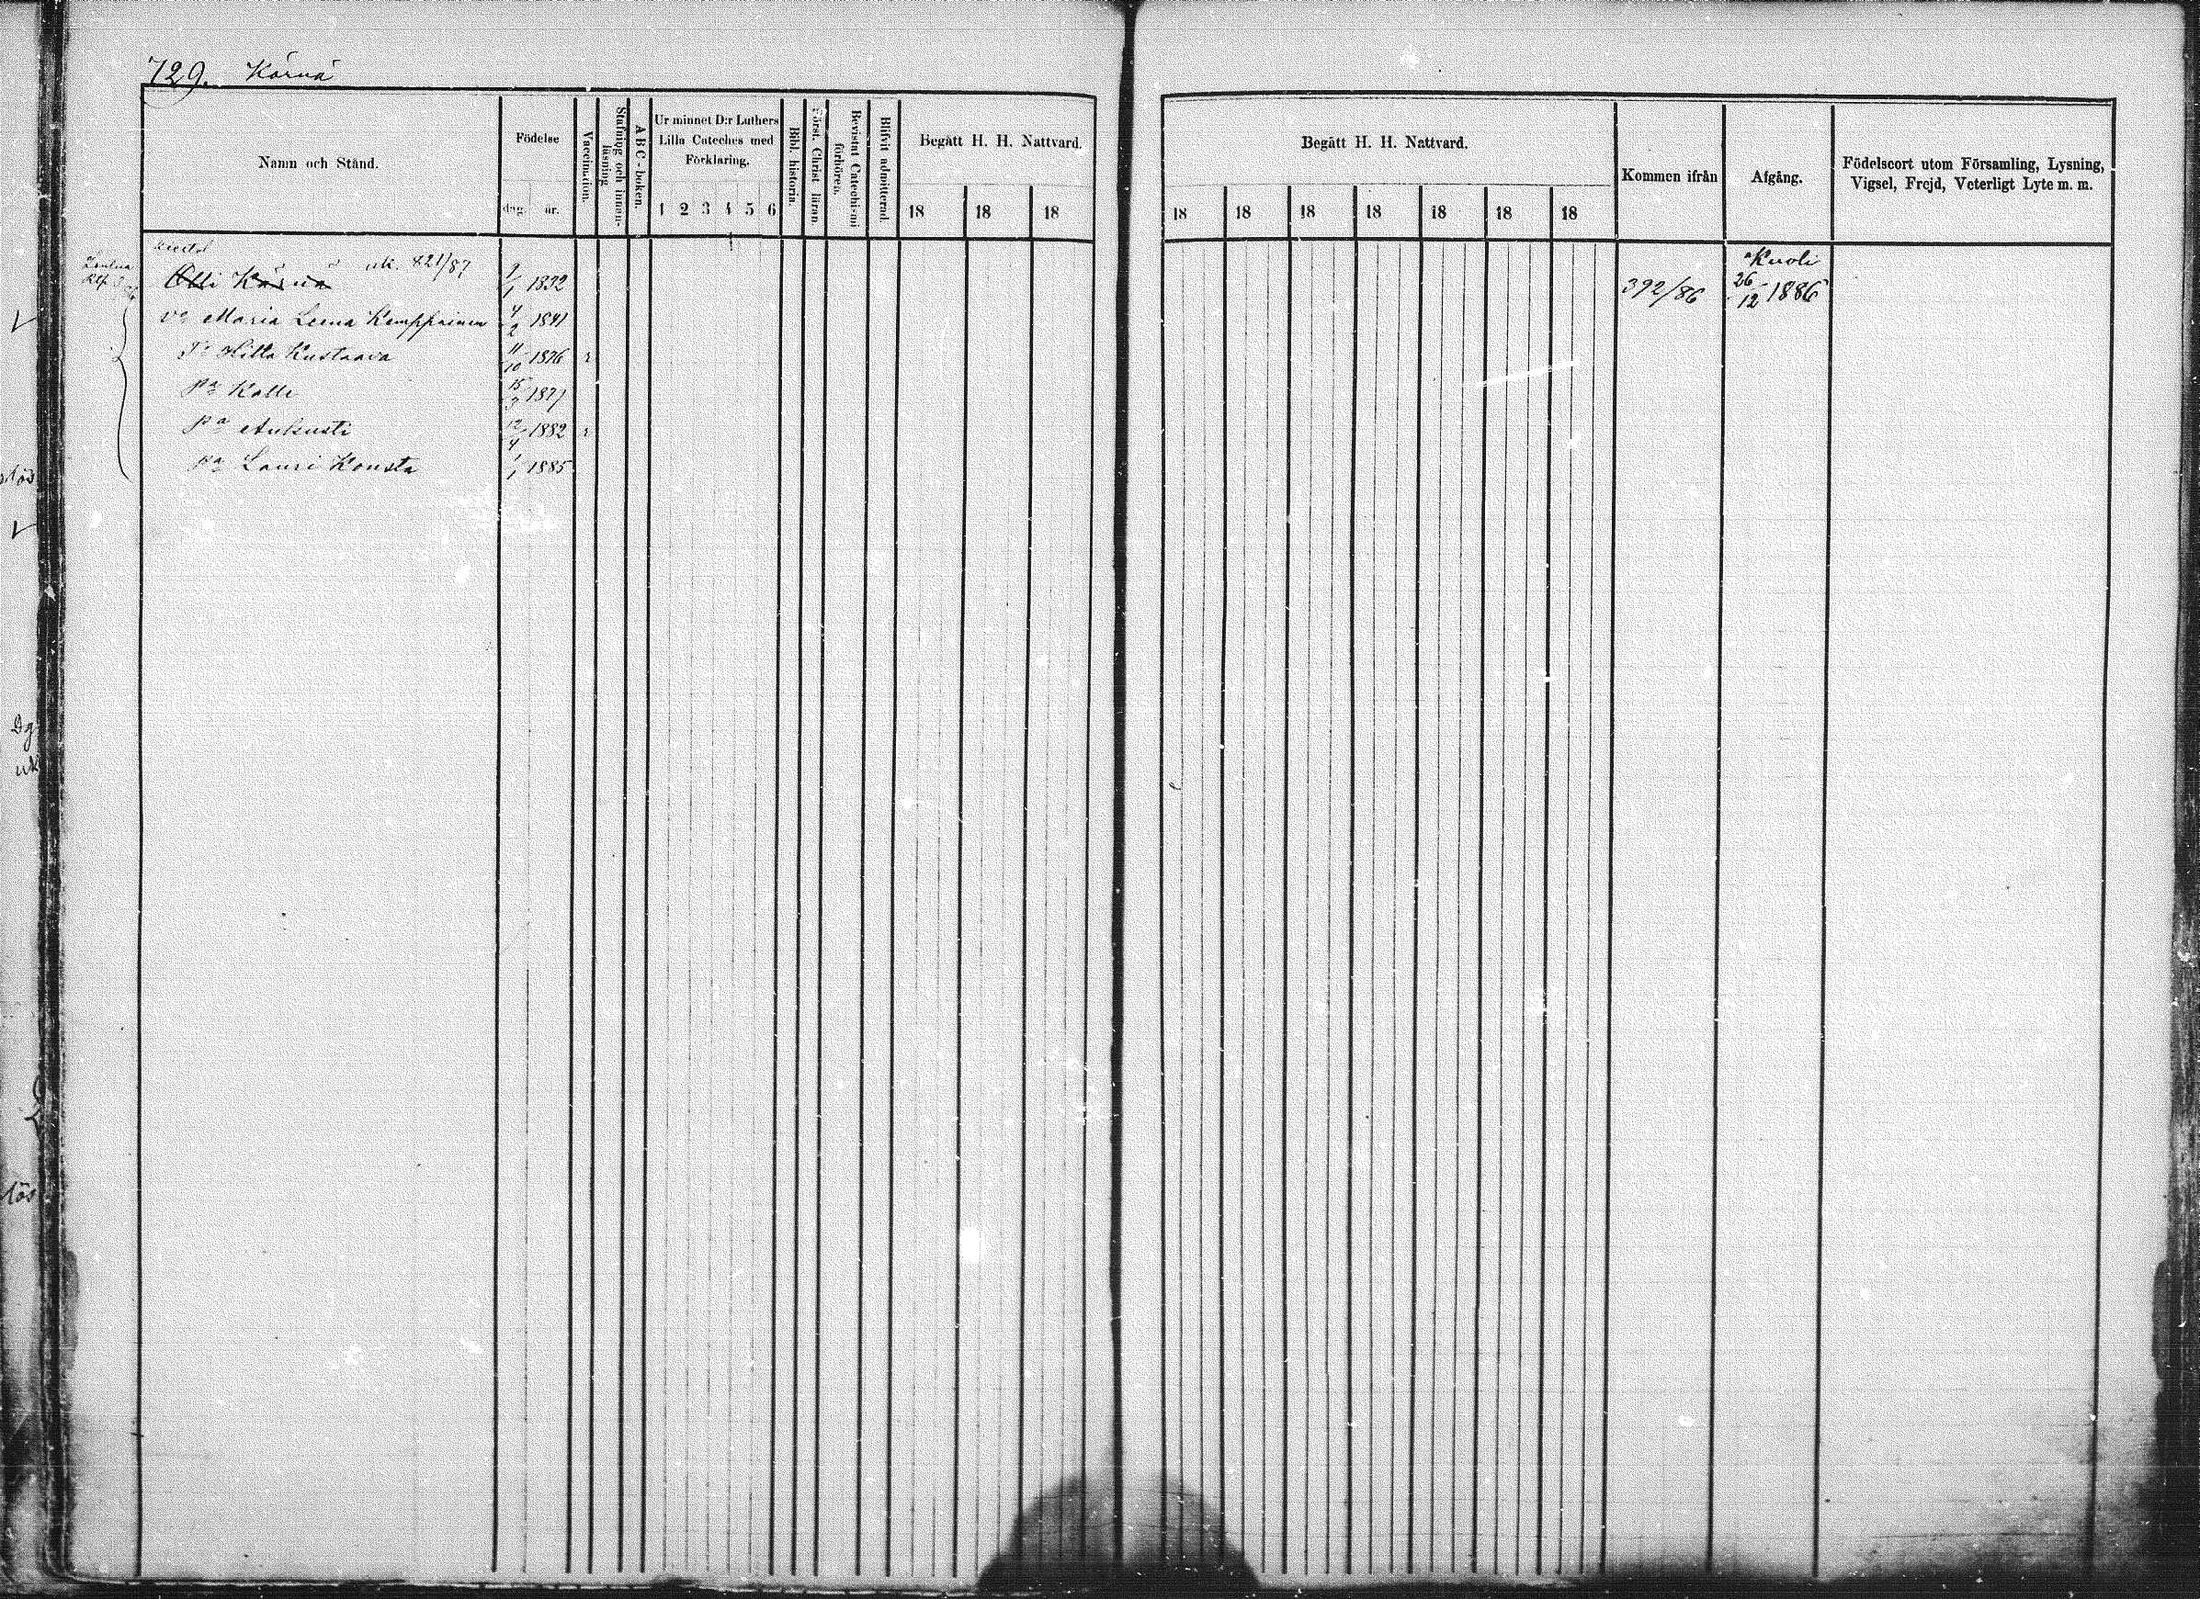 729. Kärnä
Namn och Stånd.
Födelse
dag år.
Vaccination.
Stafning och innan-läsning
ABC-boken.
Ur minnet D:r Luthers
Lilla Cateches med
Förklaring.
1 2 3 4 5 6
Bibl. historia.
Först. Christ. läran
Bevistat Catechismi förhören.
Blifvit admitterad.
Begått H. H. Nattvard.
18 18 18
Begått H. H. Nattvard.
18 18 18 18 18 18 18
Kommen ifrån
Afgång.
Födelseort utom Församling, Lysning,
Vigsel, Frejd, Veterligt Lyte m. m.
uk. 821/87
Kuoli
Olli Kärnä 1/1 1832 392/86 26/12 1886
Vo Maria Leena Kemppainen 4/2 1841
Tr Hilla Kustaava 11/10 1876
Pa Kalle 15/3 1877
Pa Aukusti 12/4 1882
Pa Lauri Konsta 1/1 1885